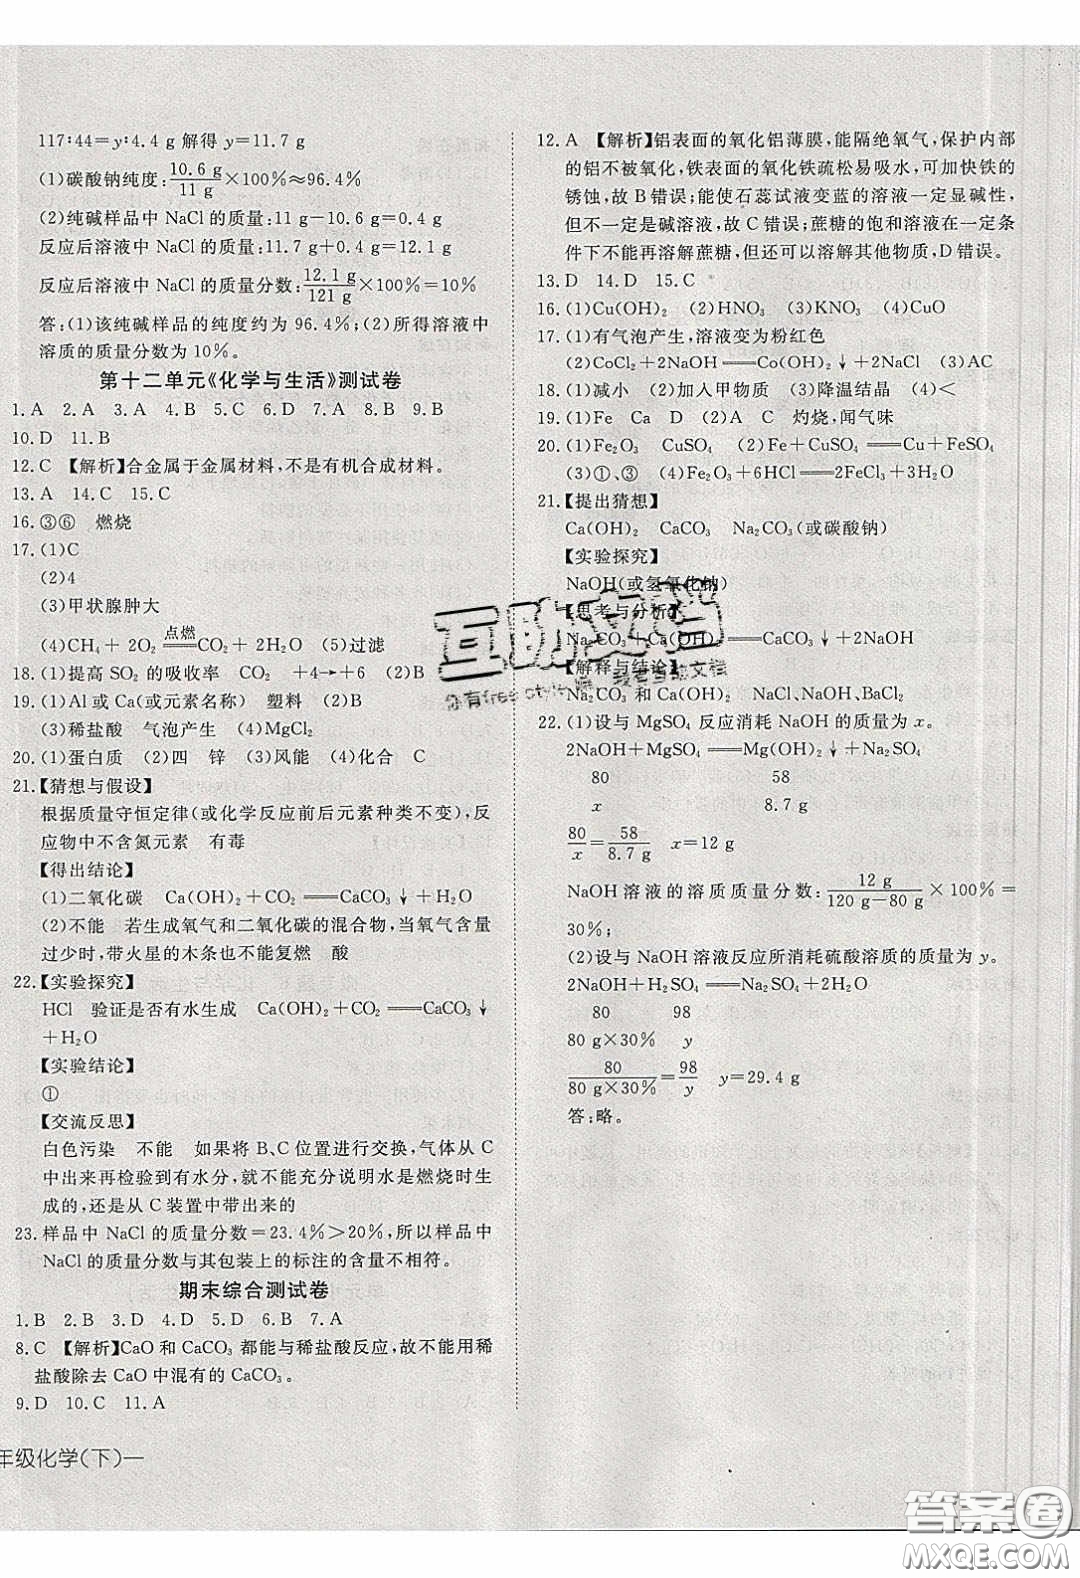 117∶44＝y∶4.4 g 解得 y＝11.7 g
(1)碳酸钠纯度:10.6 g/11 g×100%≈96.4%
(2)纯碱样品中 NaCl 的质量:11 g－10.6 g＝0.4 g
反应后溶液中 NaCl 的质量:11.7 g＋0.4 g＝12.1 g
反应后溶液中 NaCl 的质量分数:12.1 g/121 g×100%＝10%
答:(1)该纯碱样品的纯度约为 96.4%;(2)所得溶液中
溶质的质量分数为 10%。
第十二单元《化学与生活》测试卷
1.A 2.A 3.A 4.B 5.C 6.D 7.A 8.B 9.B
10.D 11.B
12.C 【解析】合金属于金属材料,不是有机合成材料。
13.A 14.C 15.C
16.③⑥ 燃烧
17.(1)C
(2)4
(3)甲状腺肿大
(4)CH₄＋2O₂ 点燃══ CO₂＋2H₂O (5)过滤
18.(1)提高 SO₂ 的吸收率 CO₂ ＋4→＋6 (2)B
19.(1)Al 或 Ca(或元素名称) 塑料 (2)B
(3)稀盐酸 气泡产生 (4)MgCl₂
20.(1)蛋白质 (2)四 锌 (3)风能 (4)化合 C
21.【猜想与假设】
根据质量守恒定律(或化学反应前后元素种类不变),反
应物中不含氮元素 有毒
【得出结论】
(1)二氧化碳 Ca(OH)₂＋CO₂══CaCO₃↓＋H₂O
(2)不能 若生成氧气和二氧化碳的混合物,当氧气含量
过少时,带火星的木条也不能复燃 酸
22.【实验探究】
HCl 验证是否有水生成 Ca(OH)₂＋CO₂══CaCO₃↓
＋H₂O
【实验结论】
①
【交流反思】
白色污染 不能 如果将 B、C 位置进行交换,气体从 C
中出来再检验到有水分,就不能充分说明水是燃烧时生
成的,还是从 C 装置中带出来的
23.样品中 NaCl 的质量分数＝23.4%＞20%,所以样品中
NaCl 的质量分数与其包装上的标注的含量不相符。
期末综合测试卷
1.B 2.B 3.D 4.D 5.D 6.B 7.A
8.C 【解析】CaO 和 CaCO₃ 都能与稀盐酸反应,故不能用稀
盐酸除去 CaO 中混有的 CaCO₃。
9.D 10.C 11.A
年级化学(下)—
12.A 【解析】铝表面的氧化铝薄膜,能隔绝氧气,保护内部
的铝不被氧化,铁表面的氧化铁疏松易吸水,可加快铁的
锈蚀,故 B 错误;能使石蕊试液变蓝的溶液一定显碱性,
但不一定是碱溶液,故 C 错误;蔗糖的饱和溶液在一定条
件下不能再溶解蔗糖,但可以溶解其他物质,D 错误。
13.D 14.D 15.C
16.(1)Cu(OH)₂ (2)HNO₃ (3)KNO₃ (4)CuO
17.(1)有气泡产生,溶液变为粉红色
(2)CoCl₂＋2NaOH══Co(OH)₂↓＋2NaCl (3)AC
18.(1)减小 (2)加入甲物质 (3)降温结晶 (4)＜
19.(1)Fe Ca D (2)A C 灼烧,闻气味
20.(1)Fe₂O₃ CuSO₄ (2)Fe＋CuSO₄══Cu＋FeSO₄
(3)①、③ (4)Fe₂O₃＋6HCl══2FeCl₃＋3H₂O
21.【提出猜想】
Ca(OH)₂ CaCO₃ Na₂CO₃(或碳酸钠)
【实验探究】
NaOH(或氢氧化钠)
【思考与分析】
Na₂CO₃＋Ca(OH)₂══CaCO₃↓＋2NaOH
【解释与结论】
Na₂CO₃ 和 Ca(OH)₂ NaCl、NaOH、BaCl₂
22.(1)设与 MgSO₄ 反应消耗 NaOH 的质量为 x。
2NaOH＋MgSO₄══Mg(OH)₂↓＋Na₂SO₄
80 58
x 8.7 g
80/x＝58/8.7 g x＝12 g
NaOH 溶液的溶质质量分数:12 g/(120 g－80 g)×100%＝
30%;
(2)设与 NaOH 溶液反应所消耗硫酸溶质的质量为 y。
2NaOH＋H₂SO₄══Na₂SO₄＋2H₂O
80 98
80 g×30% y
80/(80 g×30%)＝98/y y＝29.4 g
答:略。
互助文档
答案圈
MXQE.COM